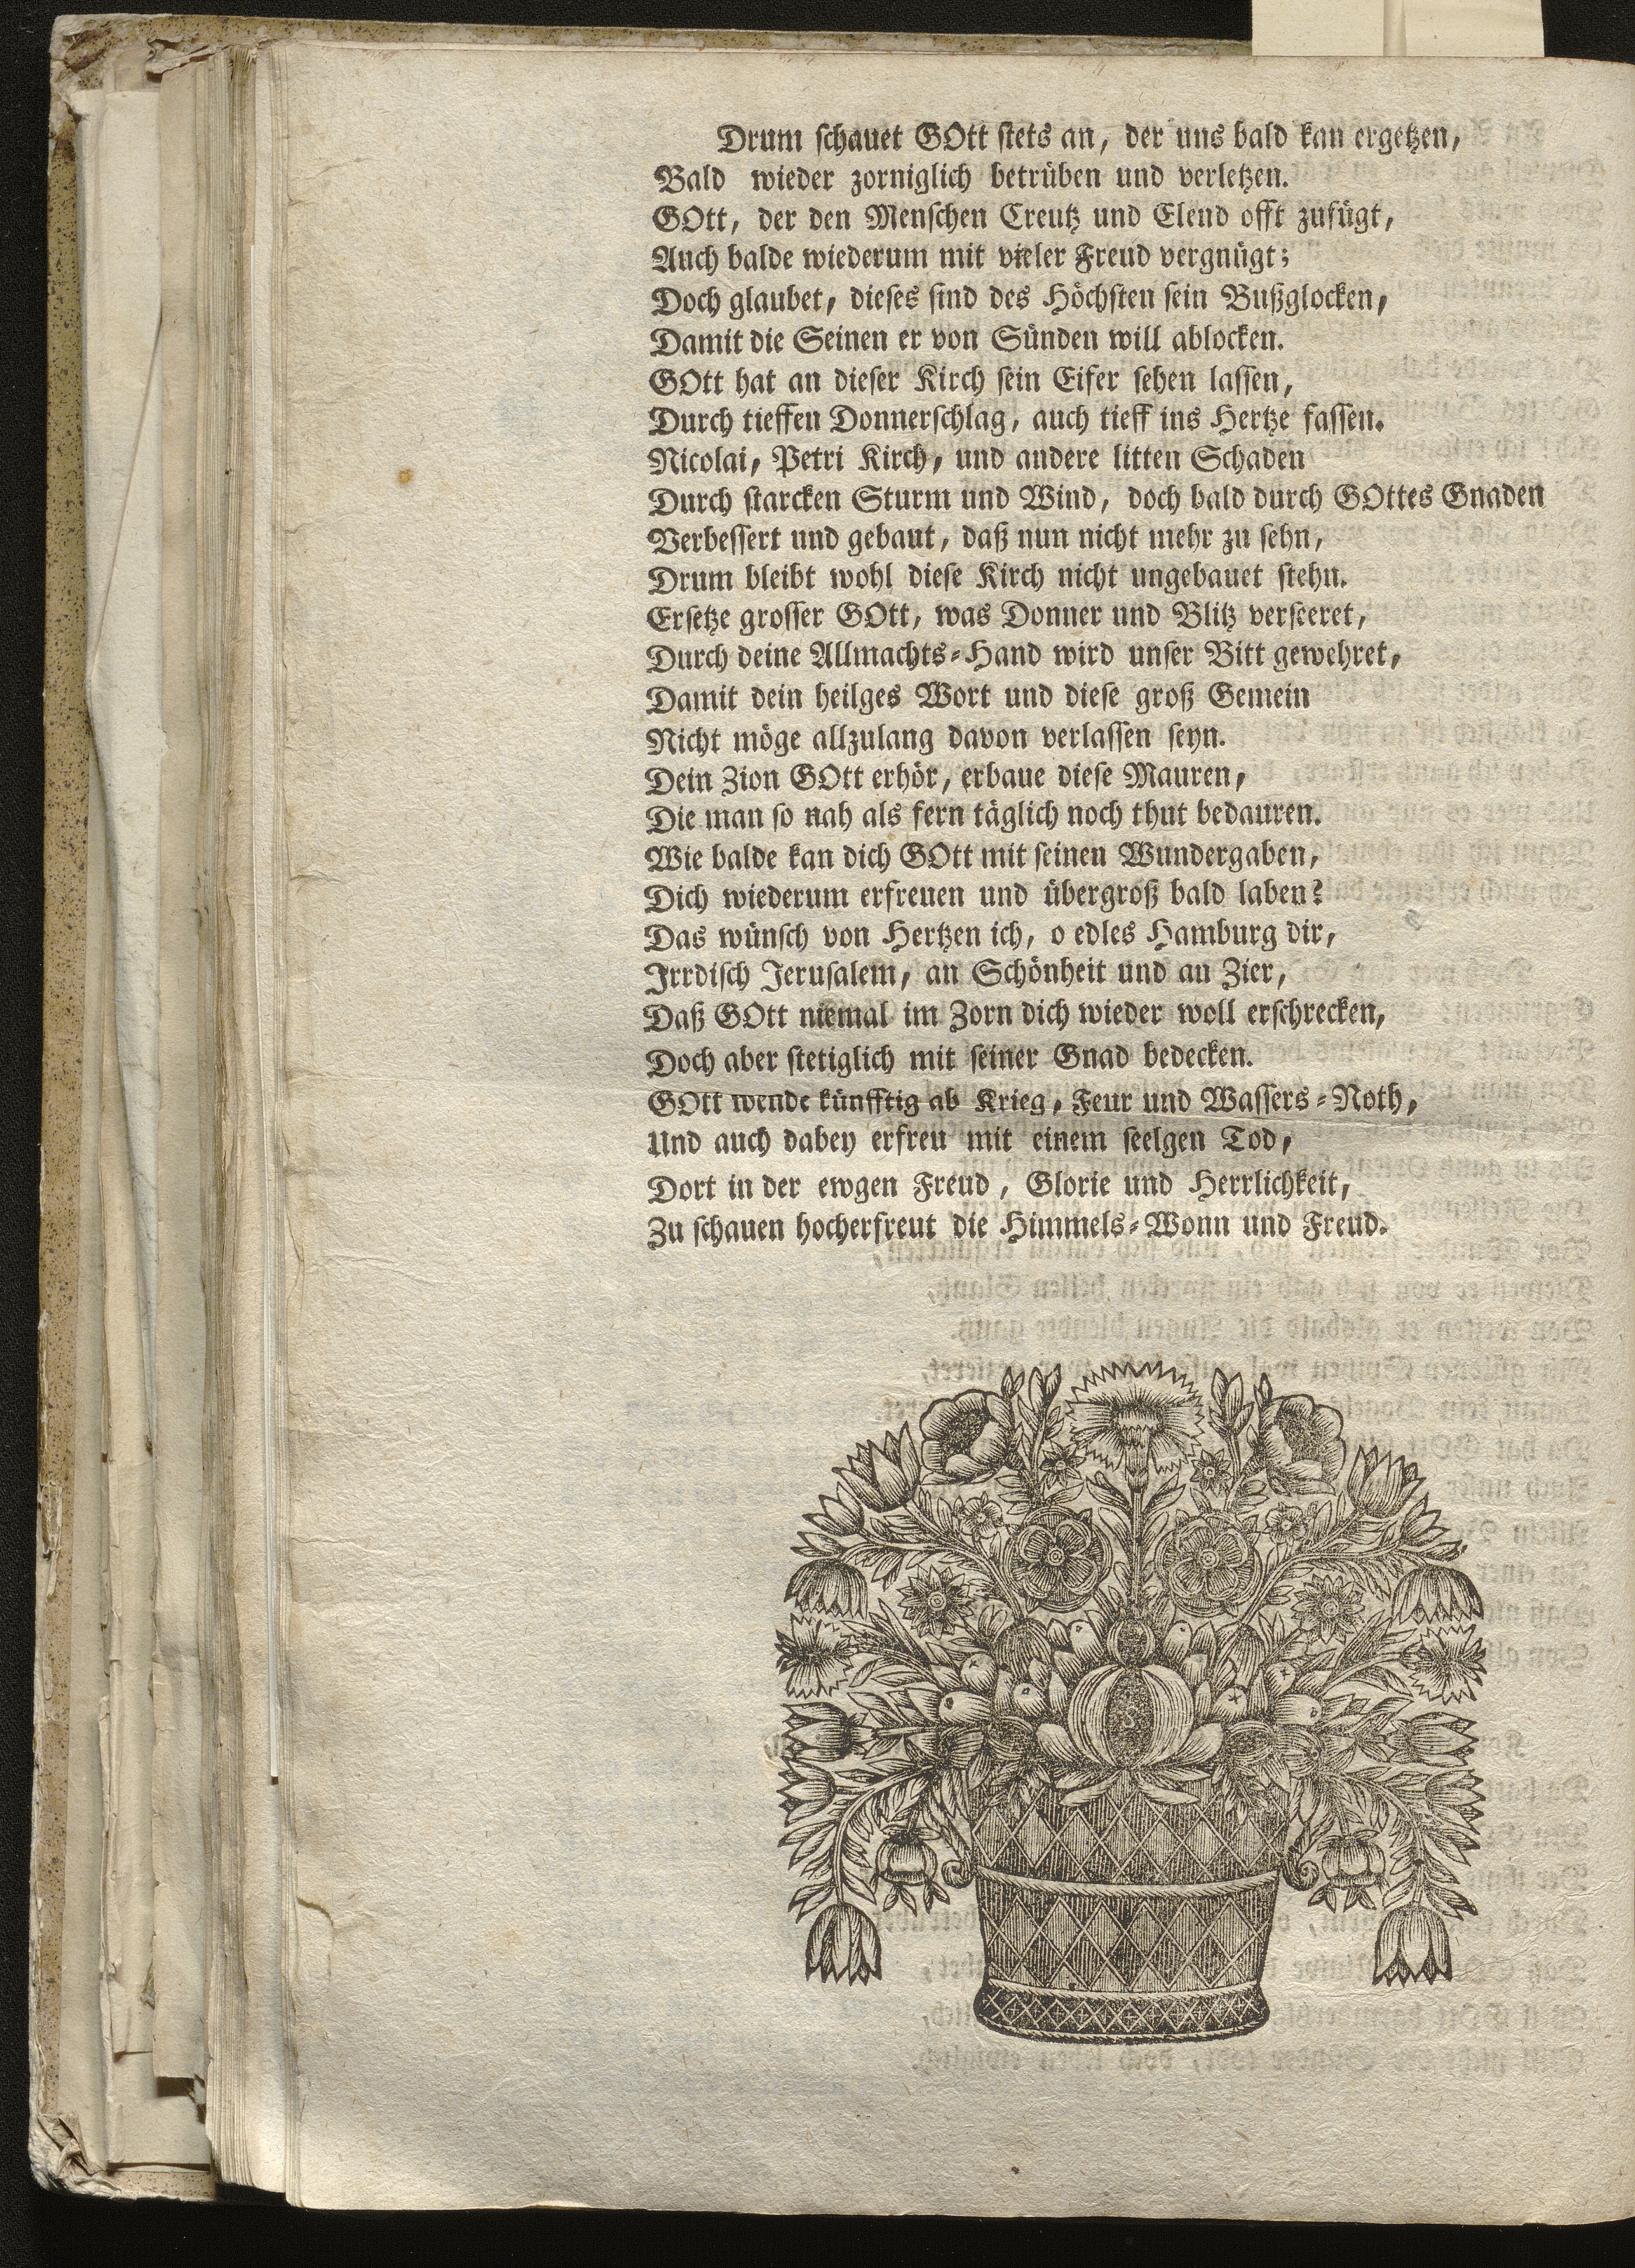 Drum schauet GOtt stets an, der uns bald kan ergetzen,
Bald wieder zorniglich betrüben und verletzen.
GOtt, der den Menschen Creutz und Elend offt zufügt,
Auch balde wiederum mit vieler Freud vergnügt;
Doch glaubet, dieses sind des Höchsten sein Bußglocken,
Damit die Seinen er von Sünden will ablocken.
GOtt hat an dieser Kirch sein Eifer sehen lassen,
Durch tieffen Donnerschlag, auch tieff ins Hertze fassen.
Nicolai, Petri Kirch, und andere litten Schaden
Durch starcken Sturm und Wind, doch bald durch GOttes Gnaden
Verbessert und gebaut, daß nun nicht mehr zu sehn,
Drum bleibt wohl diese Kirch nicht ungebauet stehn.
Ersetze grosser GOtt, was Donner und Blitz verseeret,
Durch deine Allmachts-Hand wird unser Bitt gewehret,
Damit dein heilges Wort und diese groß Gemein
Nicht möge allzulang davon verlassen seyn.
Dein Zion GOtt erhör, erbaue diese Mauren,
Die man so nah als fern täglich noch thut bedauren.
Wie balde kan dich GOtt mit seinen Wundergaben,
Dich wiederum erfreuen und übergroß bald laben?
Das wünsch von Hertzen ich, o edles Hamburg dir,
Irrdisch Jerusalem, an Schönheit und an Zier,
Daß GOtt niemal im Zorn dich wieder woll erschrecken,
Doch aber stetiglich mit seiner Gnad bedecken.
GOtt wende künfftig ab Krieg, Feur und Wassers-Noth,
Und auch dabey erfreu mit einem seelgen Tod,
Dort in der ewgen Freud, Glorie und Herrlichkeit,
Zu schauen hocherfreut die Himmels-Wonn und Freud.